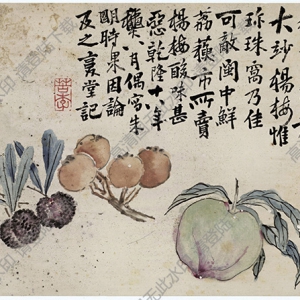 大楊梅惟
珍珠窩乃佳
可敵閩中鮮
荔市所賣
楊梅酸殊甚
惡乾隆十八年
八月偶寫朱
明時果因論
及之復堂記
苦李